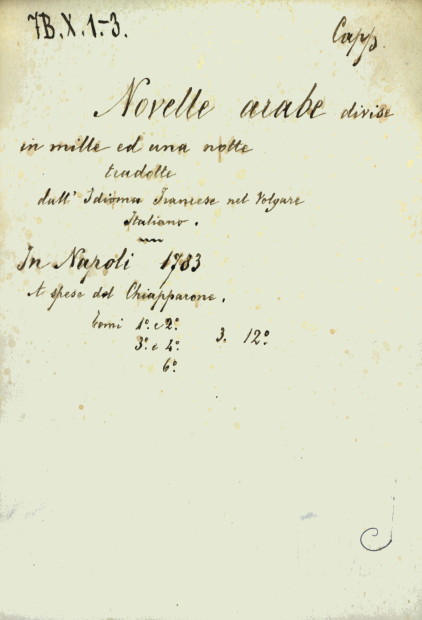 7B.X.1-3.
Capp.
Novelle arabe divise
in mille ed una notte
tradotte
dall' Idioma Francese nel Volgare
Italiano.
In Napoli 1783
A spese del Chiapparone.
tomi 1º. e 2º.
3º. e 4º. 3. 12º
6º.